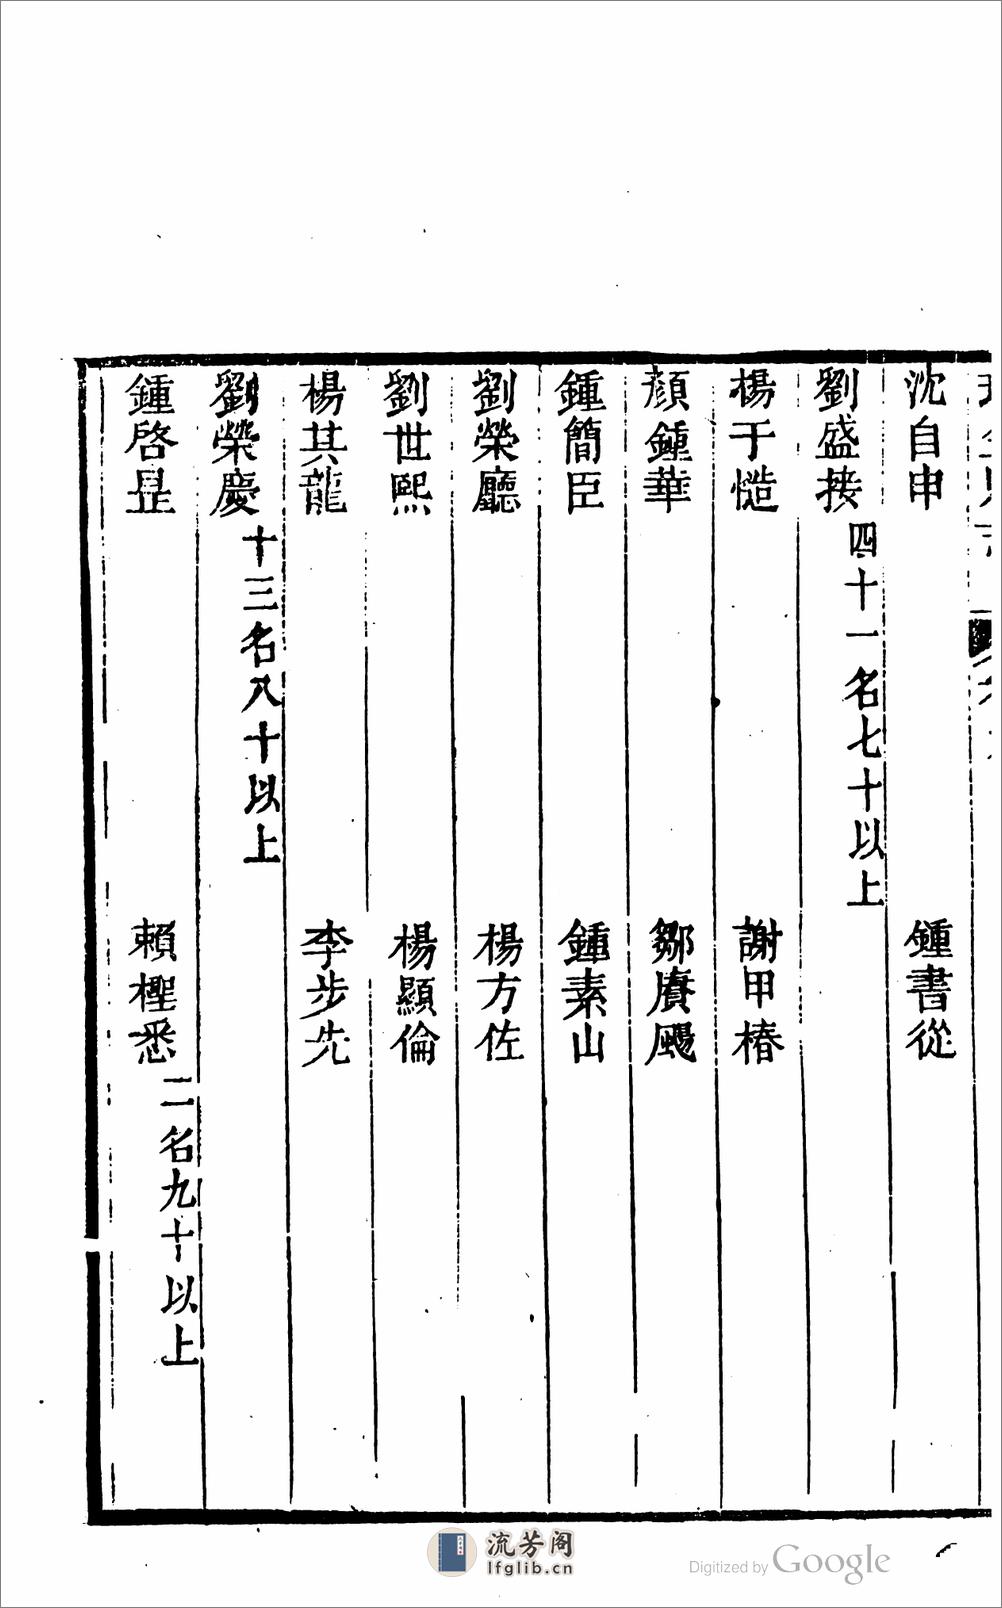 沈自申　鍾書從
劉盛接　四十一名七十以上
楊于慥　謝甲椿
顏鍾華　鄒賡颺
鍾簡臣　鍾素山
劉榮廳　楊方佐
劉世熙　楊顯倫
楊其龍　李步先
劉榮慶　十三名八十以上
鍾啓昆　賴檉悉　二名九十以上
流芳阁
lfglib.cn
Digitized by Google